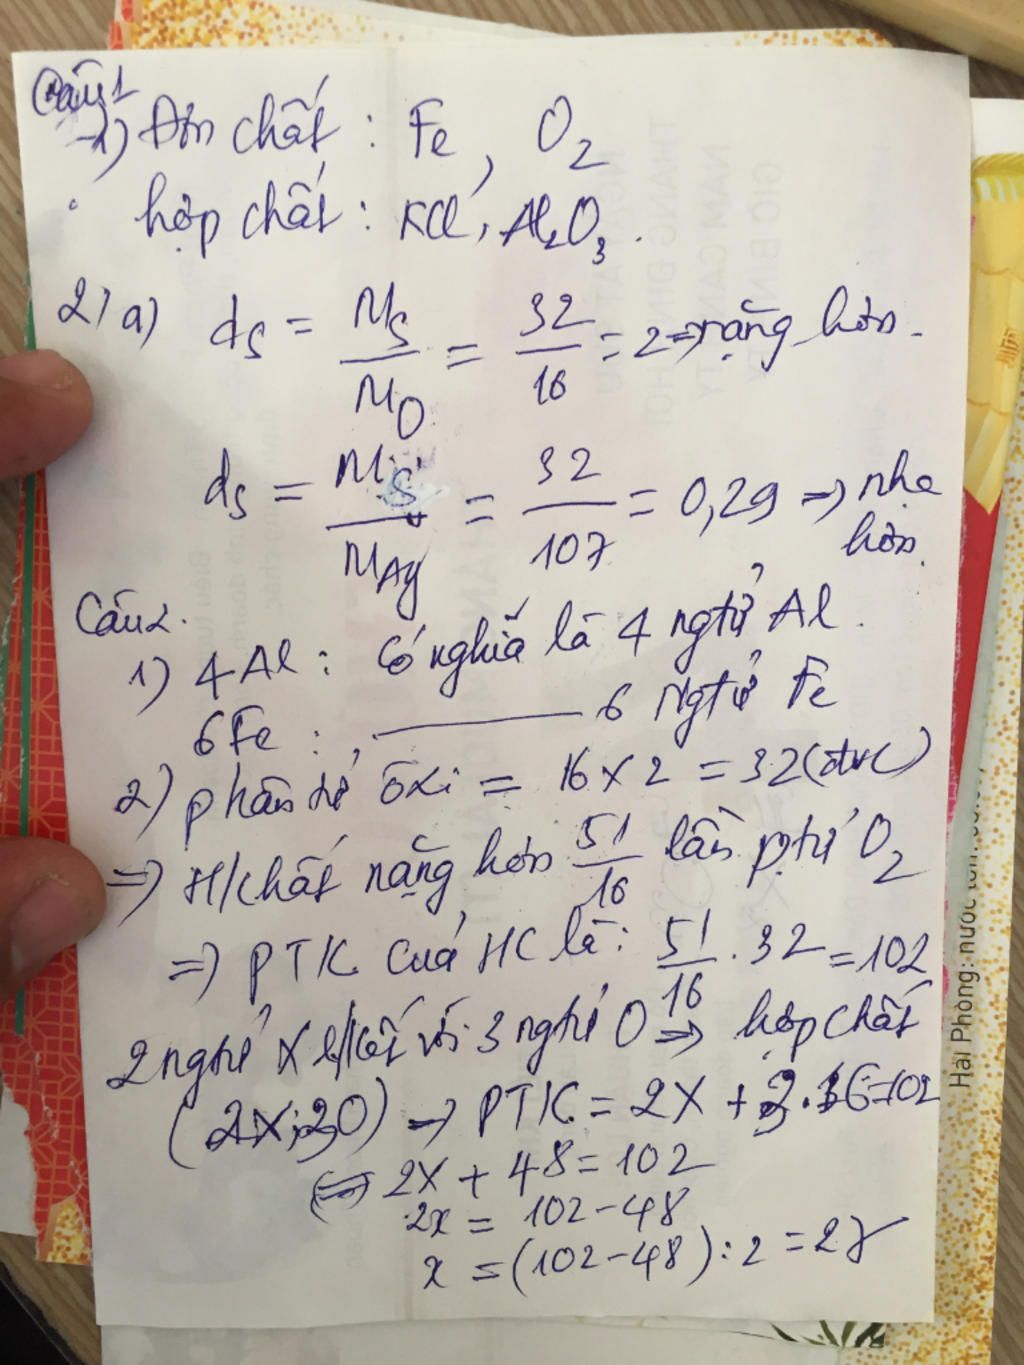 Câu 1
1) Đơn chất : Fe, O2
hợp chất : KCl, Al2O3.
2) a) dS = MS/MO = 32/16 = 2 => nặng hơn.
dS = MS/MAg = 32/107 = 0,29 => nhẹ
hơn.
Câu 2.
1) 4Al : có nghĩa là 4 ngtử Al.
6Fe : ——— 6 Ngtử Fe
2) phân tử ôxi = 16 x 2 = 32 (đvc)
=> H/chất nặng hơn 51/16 lần ptử O2
=> PTK của HC là : 51/16 . 32 = 102
2 ngtử X l/kết với 3 ngtử O => hợp chất
(2X; 3O) -> PTK = 2X + 3.16 = 102
<=> 2X + 48 = 102
2x = 102 - 48
x = (102 - 48) : 2 = 27
Hải Phòng: nước